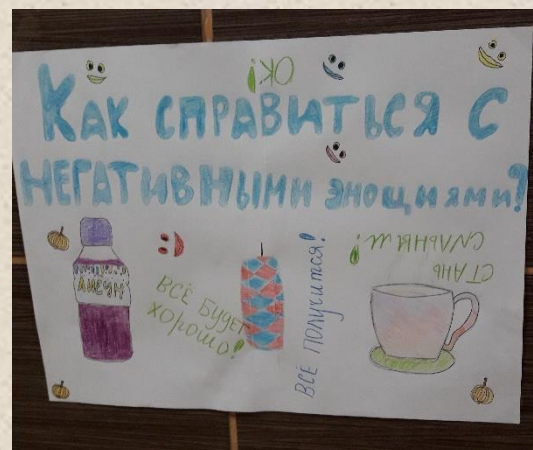 ОК!
Как справиться с
негативными эмоциями?
ВСЁ БУДЕТ
хорошо!
ВСЁ получится!
СТАНЬ
СИЛЬНЫМ!